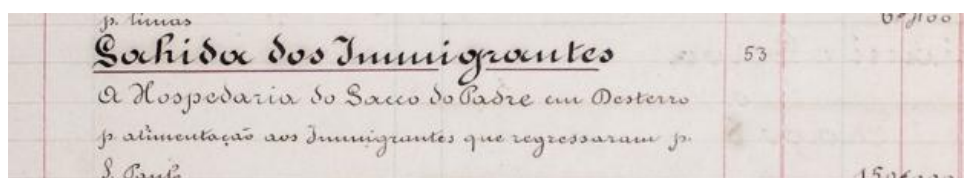 p. limas
Sahida dos Immigrantes 53
A Hospedaria do Sacco do Padre em Desterro
p. alimentação aos Immigrantes que regressaram p.
S. Paulo